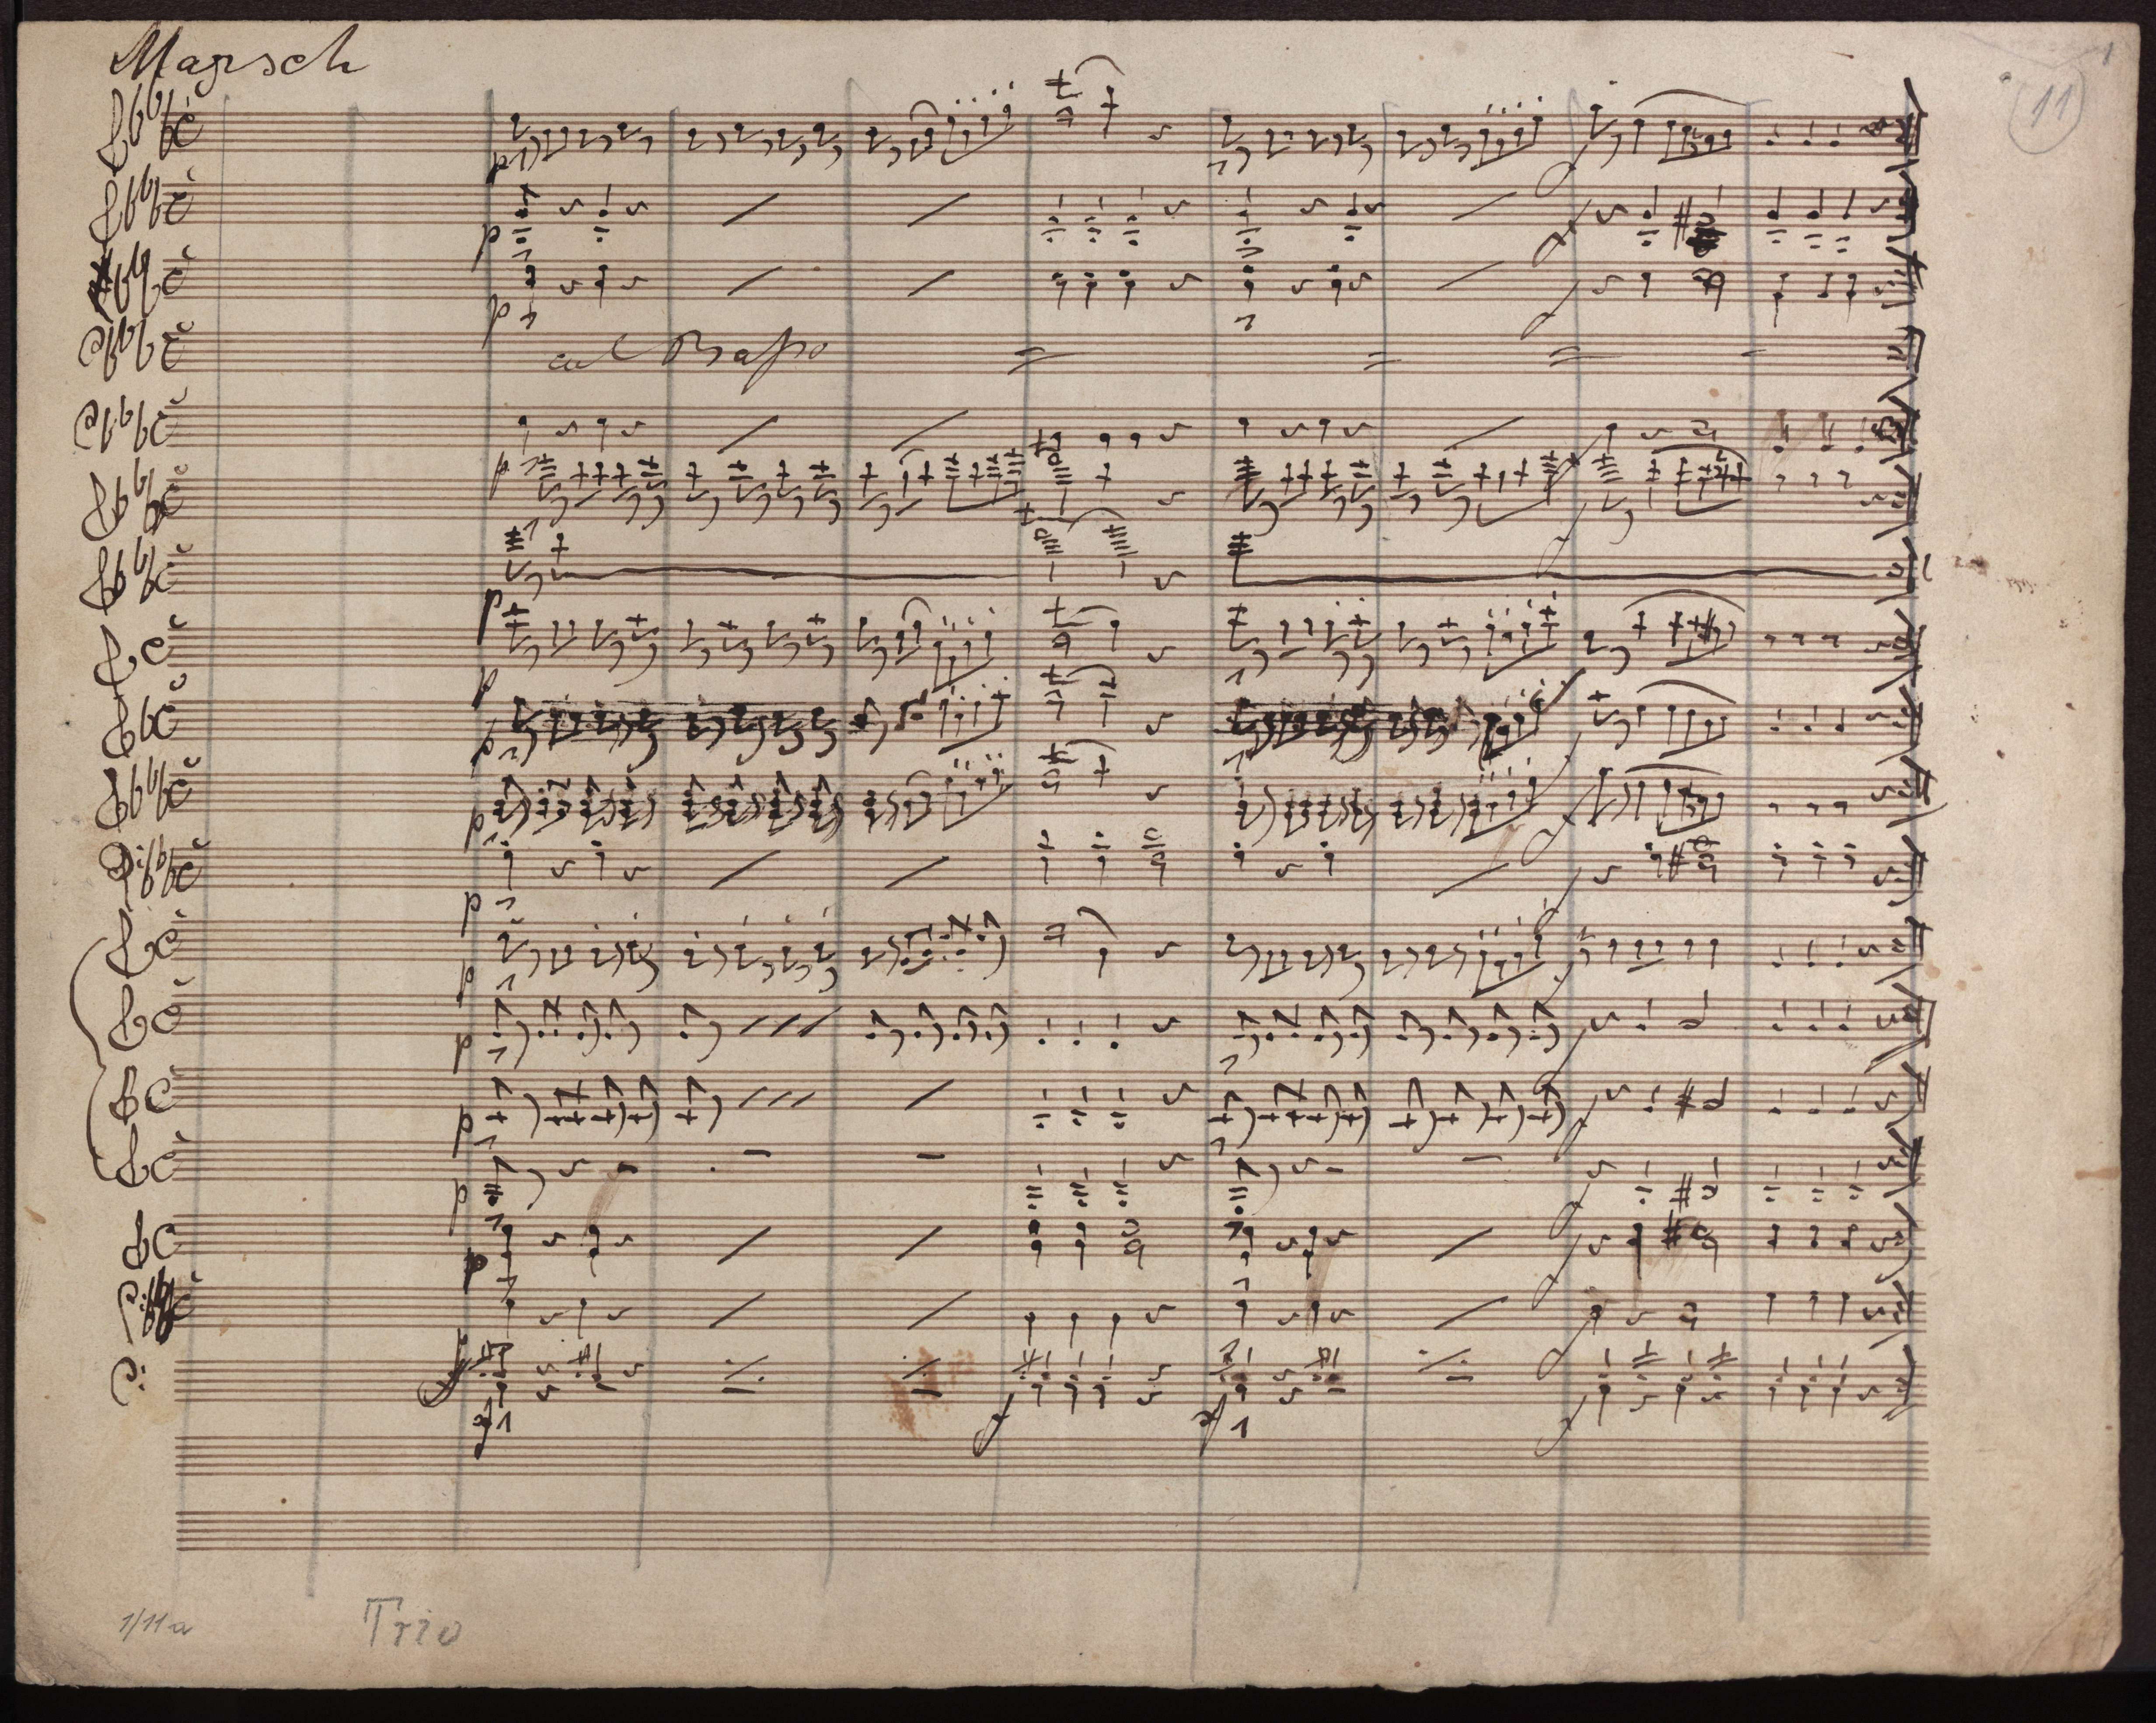 Marsch
11
col Basso
Trio
1/11a